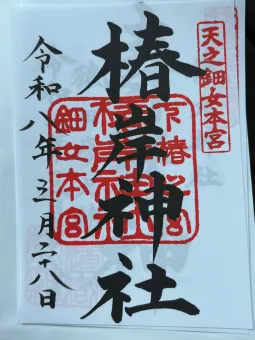 天之鈿女本宮
椿岸神社
下椿宮
椿岸神社
鈿女本宮
令和八年三月二十八日